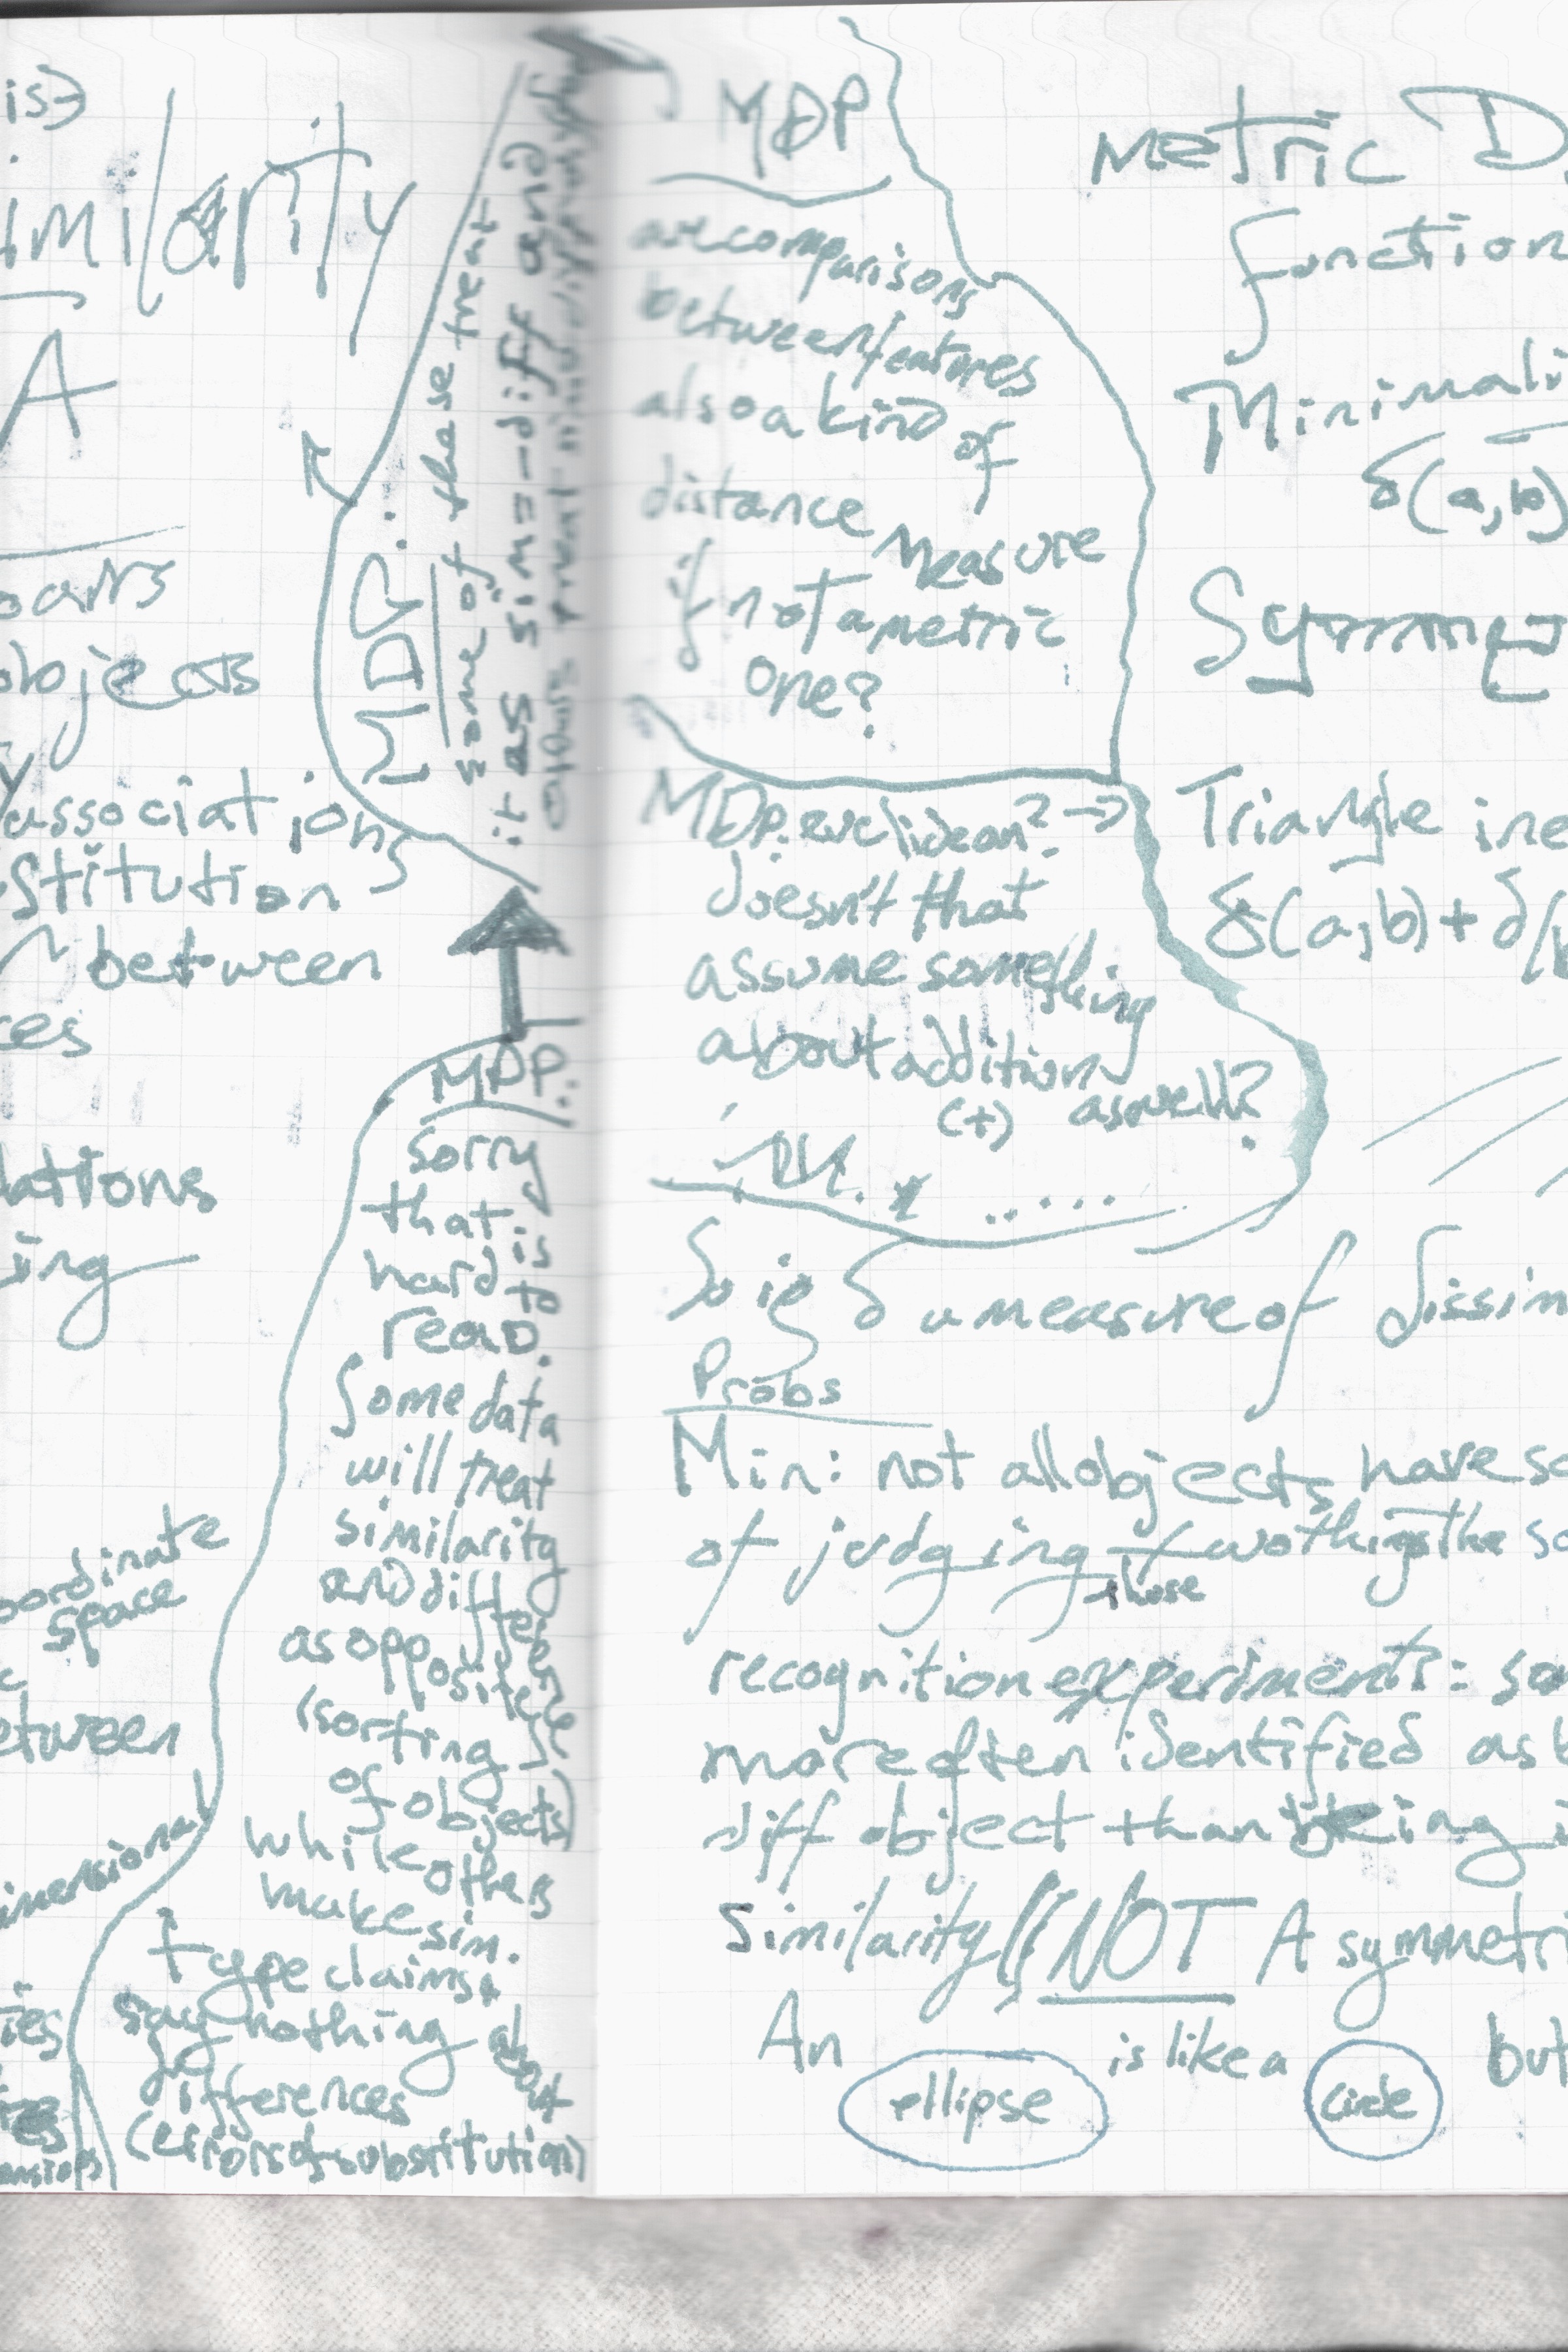 is)
imilarity
A
pairs
objects
y
associations
stitution
between
ces
lations
ing
oordinate
space
etween
imensional
ies
MDG:
some of these treat
it as sim = -diff and
MDP:
sorry
that is
hard to
read.
Some data
will treat
similarity
and difference
as opposite
(sorting
of objects)
while others
make sim.
type claims &
say nothing about
differences
(errors of substitution)
MDP
are comparisons
between features
also a kind of
distance measure
if not a metric
one?
MDP: euclidean? →
doesn't that
assume something
about addition
(+) as well?
Metric D
function
Minimali
δ(a,b)
Symme
Triangle ine
δ(a,b) + δ(
So is δ a measure of dissim
Probs
Min: not all objects have sa
of judging two things the sa
those
recognition experiments: so
more often identified as
diff object than being i
Similarity NOT A symmetri
An ellipse is like a circle but